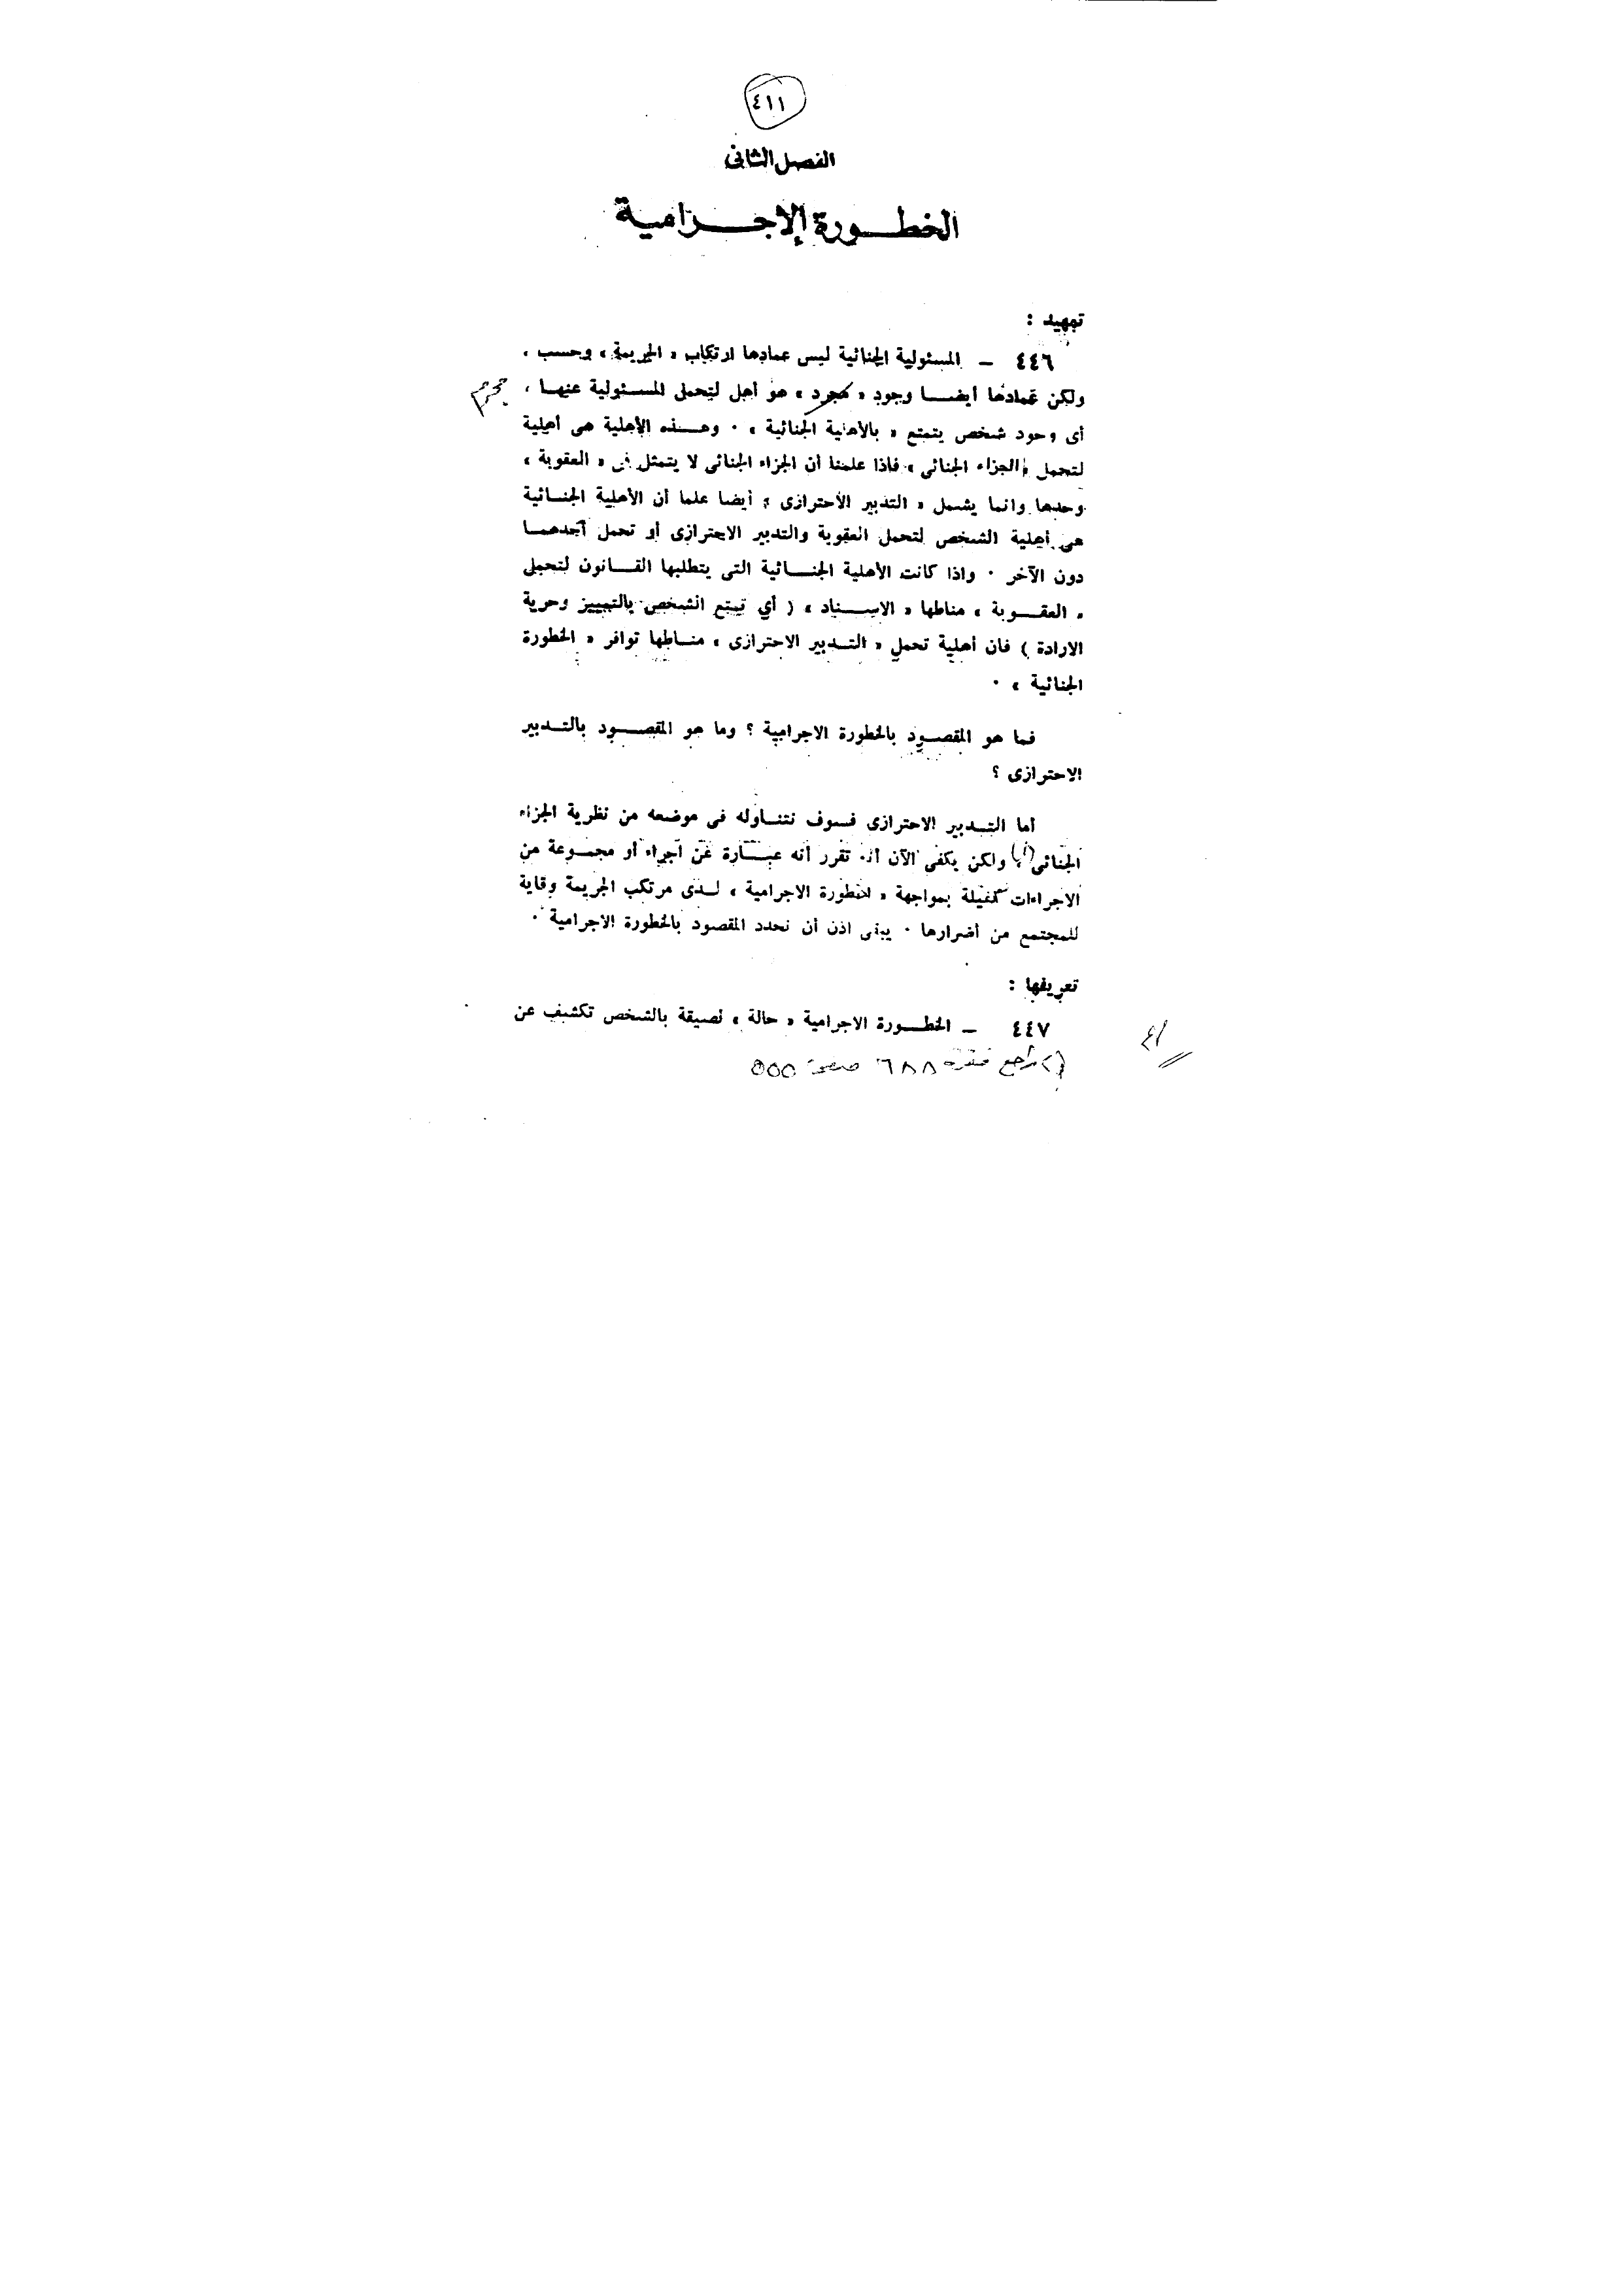 ٤١١
الفصل الثانى
الخطورة الإجرامية
تمهيد :
٤٤٦ ـ المسئولية الجنائية ليس عمادها ارتكاب « الجريمة » وحسب ،
ولكن عمادها أيضا وجود « مجرد » هو أهل لتحمل المسئولية عنها ،
مجرم
أى وجود شخص يتمتع « بالأهلية الجنائية » ٠ وهذه الأهلية هى أهلية
لتحمل « الجزاء الجنائى » فاذا علمنا أن الجزاء الجنائى لا يتمثل فى « العقوبة »
وحدها وانما يشمل « التدبير الأحترازى » أيضا علما أن الأهلية الجنائية
هى أهلية الشخص لتحمل العقوبة والتدبير الاحترازى أو تحمل أحدهما
دون الآخر ٠ واذا كانت الأهلية الجنائية التى يتطلبها القانون لتحمل
« العقوبة » مناطها « الاسناد » ( أي تمتع الشخص بالتمييز وحرية
الارادة ) فان أهلية تحمل « التدبير الاحترازى » مناطها توافر « الخطورة
الجنائية » ٠
فما هو المقصود بالخطورة الاجرامية ؟ وما هو المقصود بالتدبير
الاحترازى ؟
أما التدبير الاحترازى فسوف نتناوله فى موضعه من نظرية الجزاء
الجنائى (١) ولكن يكفى الآن أن تقرر أنه عبارة عن أجراء أو مجموعة من
الاجراءات كفيلة بمواجهة « الخطورة الاجرامية » لدى مرتكب الجريمة وقاية
للمجتمع من أضرارها ٠ يبقى اذن أن نحدد المقصود بالخطورة الاجرامية ٠
تعريفها :
٤٤٧ ـ الخطورة الاجرامية « حالة » لصيقة بالشخص تكشف عن
(١) راجع فقرة ٦٨٨ صفحة ٥٥٥